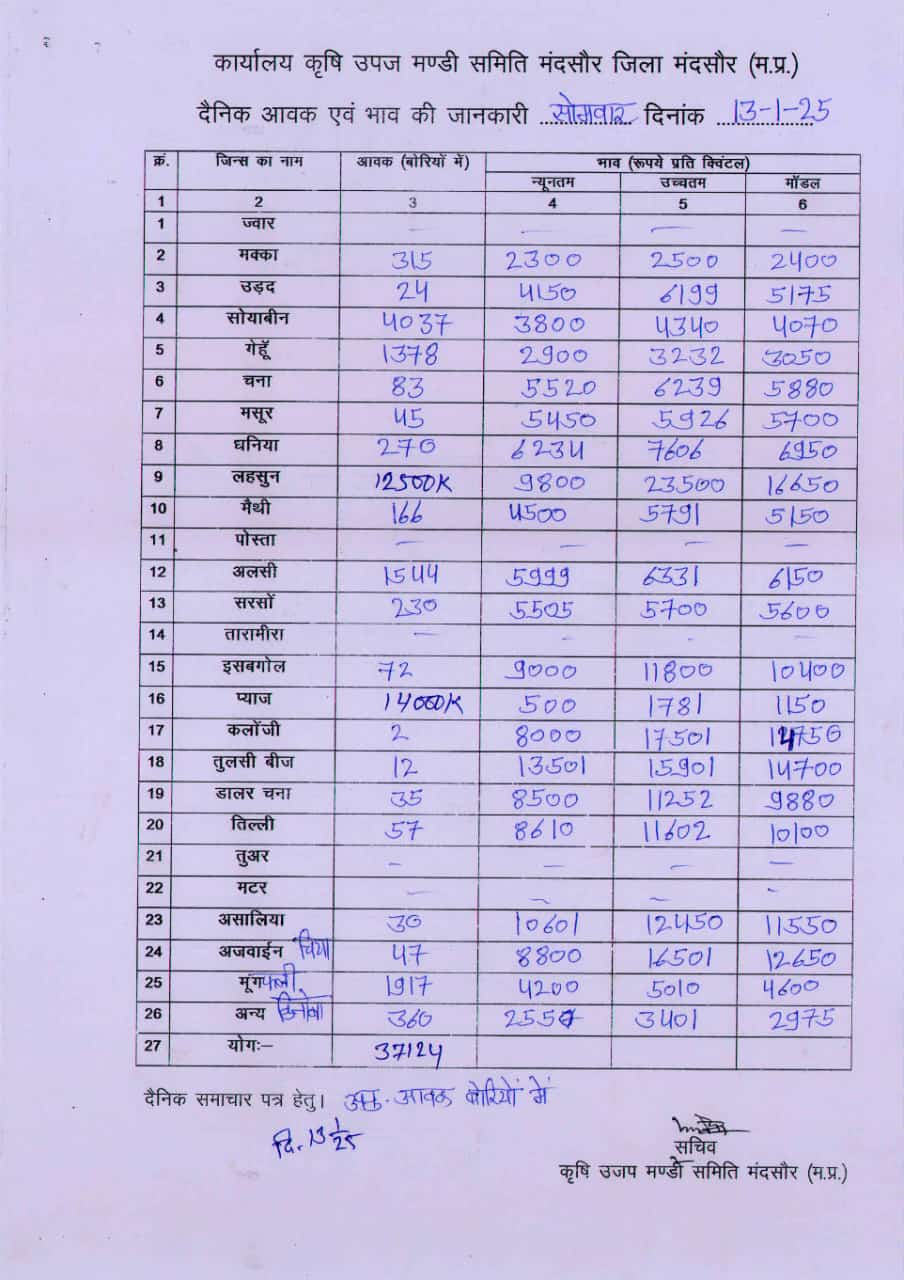 कार्यालय कृषि उपज मण्डी समिति मंदसौर जिला मंदसौर (म.प्र.)
दैनिक आवक एवं भाव की जानकारी सोमवार दिनांक 13-1-25
क्रं. जिन्स का नाम आवक (बोरियों में) भाव (रूपये प्रति क्विंटल)
न्यूनतम उच्चतम मॉडल
1 2 3 4 5 6
1 ज्वार — — — —
2 मक्का 315 2300 2500 2400
3 उड़द 24 4150 6199 5175
4 सोयाबीन 4037 3800 4340 4070
5 गेहूँ 1378 2900 3232 3050
6 चना 83 5520 6239 5880
7 मसूर 45 5450 5926 5700
8 धनिया 270 6234 7606 6950
9 लहसुन 12500K 9800 23500 16650
10 मैथी 166 4500 5791 5150
11 पोस्ता — — — —
12 अलसी 1544 5999 6331 6150
13 सरसों 230 5505 5700 5600
14 तारामीरा — - - -
15 इसबगोल 72 9000 11800 10400
16 प्याज 14000K 500 1781 1150
17 कलोंजी 2 8000 17501 14750
18 तुलसी बीज 12 13501 15901 14700
19 डालर चना 35 8500 11252 9880
20 तिल्ली 57 8610 11602 10100
21 तुअर — — — —
22 मटर — — — -
23 असालिया 30 10601 12450 11550
24 अजवाईन चिया 47 8800 16501 12650
25 मूंगफली 1917 4200 5010 4600
26 अन्य किनोवा 360 2550 3401 2975
27 योगः– 37124
दैनिक समाचार पत्र हेतु। आवक बोरियों में
दि. 13 1/25
सचिव
कृषि उजप मण्डी समिति मंदसौर (म.प्र.)